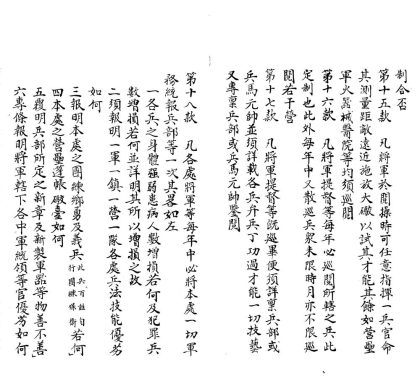 制合否
第十五款　凡各將軍於閱操時可任意指揮一兵官命
其測量距敵遠近施放大礮以試其才能其餘如營壘
軍火器械醫院等均須巡閱
第十六款　凡將軍提督等每年必巡閱所轄之兵此
定制也此外每年中又散巡兵衆未限時月亦不限巡
閱若干營
第十七款　凡將軍提督等既巡畢便須詳稟兵部或
兵馬元帥並須詳載各兵弁兵丁功過才能一切技藝
又專稟兵部或兵馬元帥鑒閱
第十八款　凡各處將軍等每年中必將本處一切軍
務統報兵部等一次其畧如左
一各兵之身體强弱患病人數增損若何及犯罪兵
數增損若何並詳明其所以增損之故
二須報明一軍一鎮一營一隊各處兵法技能優劣
如何
三報明本處之團練鄉勇及義兵此兵可註自行團練操衛若何
四本處之營壘運帳礮臺如何
五覆明兵部所定之新章及新製軍器等物善不善
六專條報明將軍轄下各中軍統領等官優劣如何